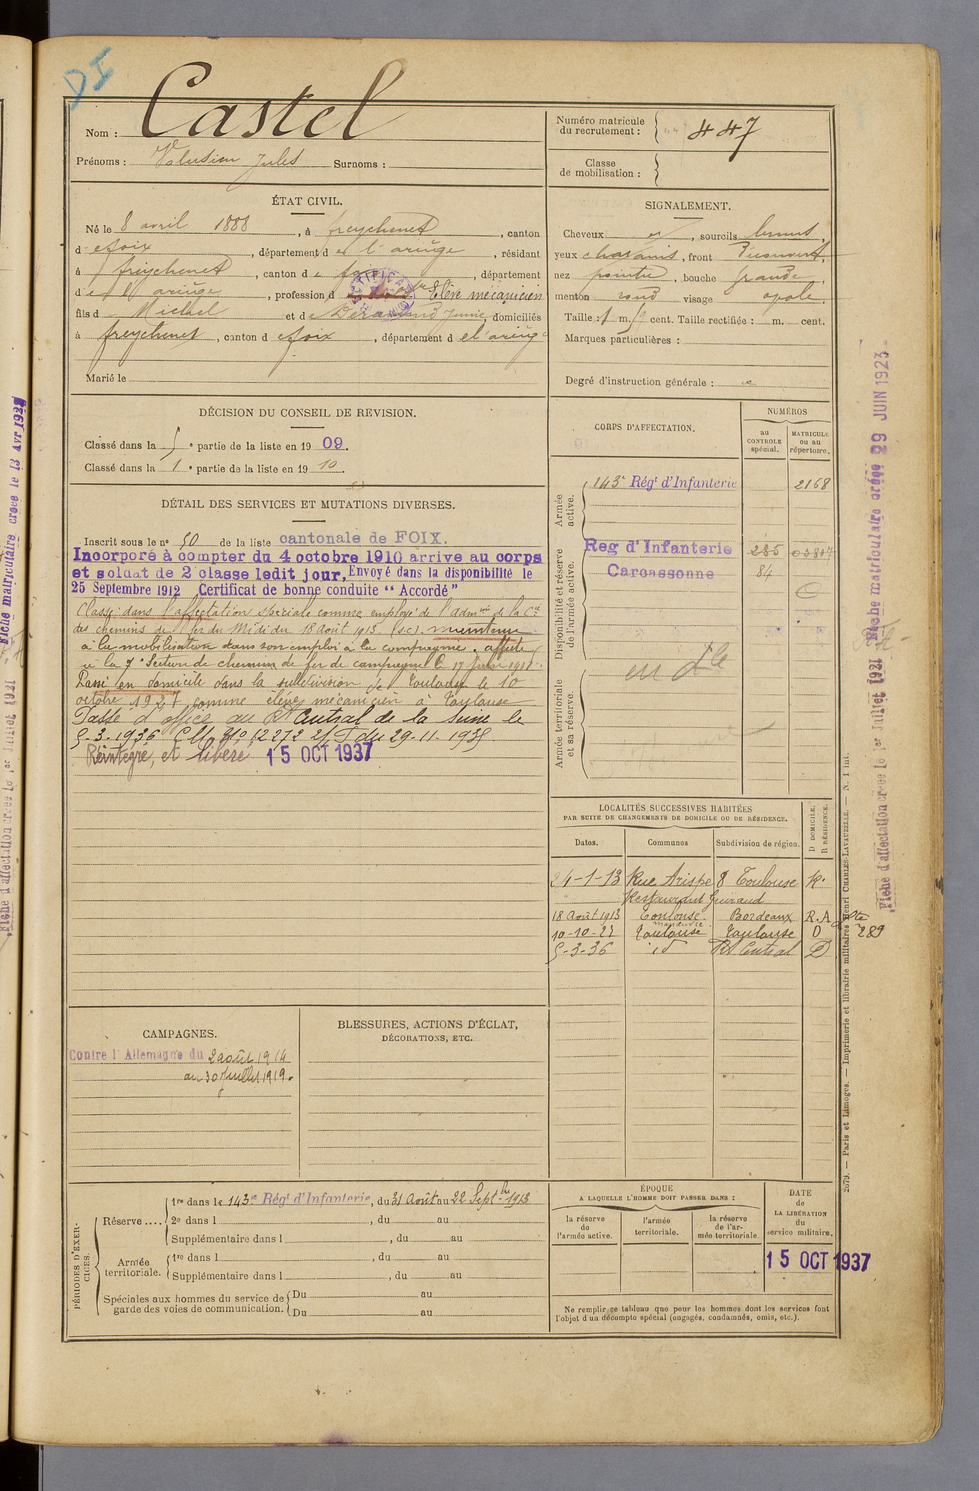 DI
Nom : Castel
Prénoms : Volusien Jules Surnoms :
Numéro matricule du recrutement : 447
Classe de mobilisation :
ÉTAT CIVIL.
Né le 8 avril 1888, à freychenet, canton
d e foix, département d e l'ariège, résidant
à freychenet, canton d e foix, département
d e l'ariège, profession d Elève mécanicien
fils d Michel et d e , domiciliés
à freychenet, canton d e foix, département d e l'ariège
Marié le
SIGNALEMENT.
Cheveux , sourcils bruns,
yeux chatains, front Découvert,
nez pointu, bouche grande
menton rond visage ovale.
Taille : 1 m. cent. Taille rectifiée : m. cent.
Marques particulières :
Degré d'instruction générale :
DÉCISION DU CONSEIL DE REVISION.
Classé dans la 5 e partie de la liste en 19 09.
Classé dans la 1 e partie de la liste en 19 10.
DÉTAIL DES SERVICES ET MUTATIONS DIVERSES.
Inscrit sous le no 50 de la liste cantonale de FOIX.
Incorporé à compter du 4 octobre 1910 arrive au corps
et soldat de 2 classe ledit jour. Envoyé dans la disponibilité le
25 Septembre 1912 Certificat de bonne conduite "Accordé"
Classé dans l'affectation spéciale comme employé de l'Admon de la Cie
des chemins de fer du Midi du 18 Août 1913. (sc). maintenu
à la mobilisation dans son emploi à la compagnie. affecté
à la 7e Section de chemins de fer de campagne le 17 Juin 1918.
Passé en domicile dans la subdivision de Toulouse le 10
octobre 1927 comme élève mécanicien à Toulouse
Passé d'office au Rt Central de la Seine le
5-3-1936 C.M. No 12273 2/T du 29.11.1935
Réintégré, et libéré 15 OCT 1937
CORPS D'AFFECTATION.
NUMÉROS
au CONTROLE spécial.
MATRICULE ou au répertoire.
Armée active.
143e Régt d'Infanterie 2168
Disponibilité et réserve de l'armée active.
Reg d'Infanterie
Carcassonne 84
Armée territoriale et sa réserve.
LOCALITÉS SUCCESSIVES HABITÉES
PAR SUITE DE CHANGEMENTS DE DOMICILE OU DE RÉSIDENCE.
D DOMICILE. R RÉSIDENCE.
Dates. Communes Subdivision de région.
24-1-13 Rue Arispe 8 Toulouse R.
Restaurant Guiraud
18 Août 1913 Toulouse Bordeaux R.A
10-10-27 Toulouse Toulouse D 289
5-3-36 id Rt Central D
CAMPAGNES.
Contre l'Allemagne du 2 août 1914
au 30 Juillet 1919.
BLESSURES, ACTIONS D'ÉCLAT,
DÉCORATIONS, ETC.
PÉRIODES D'EXERCICES.
Réserve....
1re dans le 143e Régt d'Infanterie, du 31 Août au 22 Septbre 1913
2e dans l , du au
Supplémentaire dans l , du au
Armée territoriale.
1re dans l , du au
Supplémentaire dans l , du au
Spéciales aux hommes du service de garde des voies de communication.
Du au
Du au
ÉPOQUE
A LAQUELLE L'HOMME DOIT PASSER DANS :
la réserve de l'armée active.
l'armée territoriale.
la réserve de l'armée territoriale.
DATE de LA LIBÉRATION du service militaire.
15 OCT 1937
Ne remplir ce tableau que pour les hommes dont les services font
l'objet d'un décompte spécial (engagés, condamnés, omis, etc.).
2679. — Paris et Limoges. — Imprimerie et librairie militaires Henri CHARLES-LAVAUZELLE. — N. 1 int.
Fiche d'affectation créée le 1er Juillet 1921
Fiche matriculaire créée 29 JUIN 1923
Fiche d'affectation créée le 1er Juillet 1921
Fiche matriculaire créée le 13 Avr